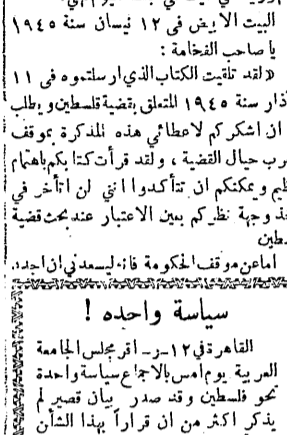 البيت الابيض فى ١٢ نيسان سنة ١٩٤٥
يا صاحب الفخامة :
«لقد تلقيت الكتاب الذى ارسلتموه فى ١١
ذار سنة ١٩٤٥ المتعلق بقضية فلسطين ويطلب
ان اشكركم لاعطائي هذه المذكرة بموقف
رب حيال القضية ، ولقد قرأت كتابكم باهتمام
ظيم ويمكنكم ان تتأكدوا انني لن اتأخر في
خذ وجهة نظركم بعين الاعتبار عند بحث قضية
طين
اما عن موقف الحكومة فانه ليسعدني ان اجدد
سياسة واحده !
القاهرة في ١٢-ر- أقر مجلس الجامعة
العربية يوم امس بالاجماع سياسة واحدة
نحو فلسطين وقد صدر بيان قصير لم
يذكر اكثر من ان قراراً بهذا الشأن